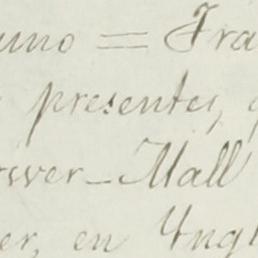 uno = Fra
presentes,
rsver - Mall
er, en Yngl